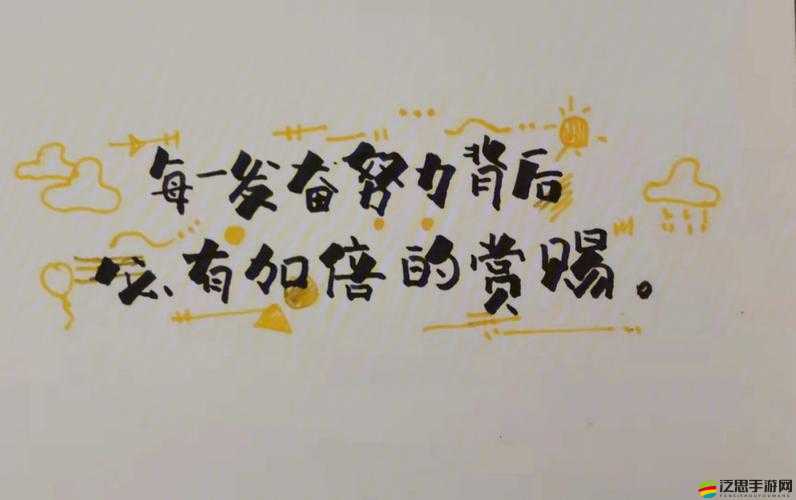 每一发奋努力背后
必有加倍的赏赐。
泛思手游网